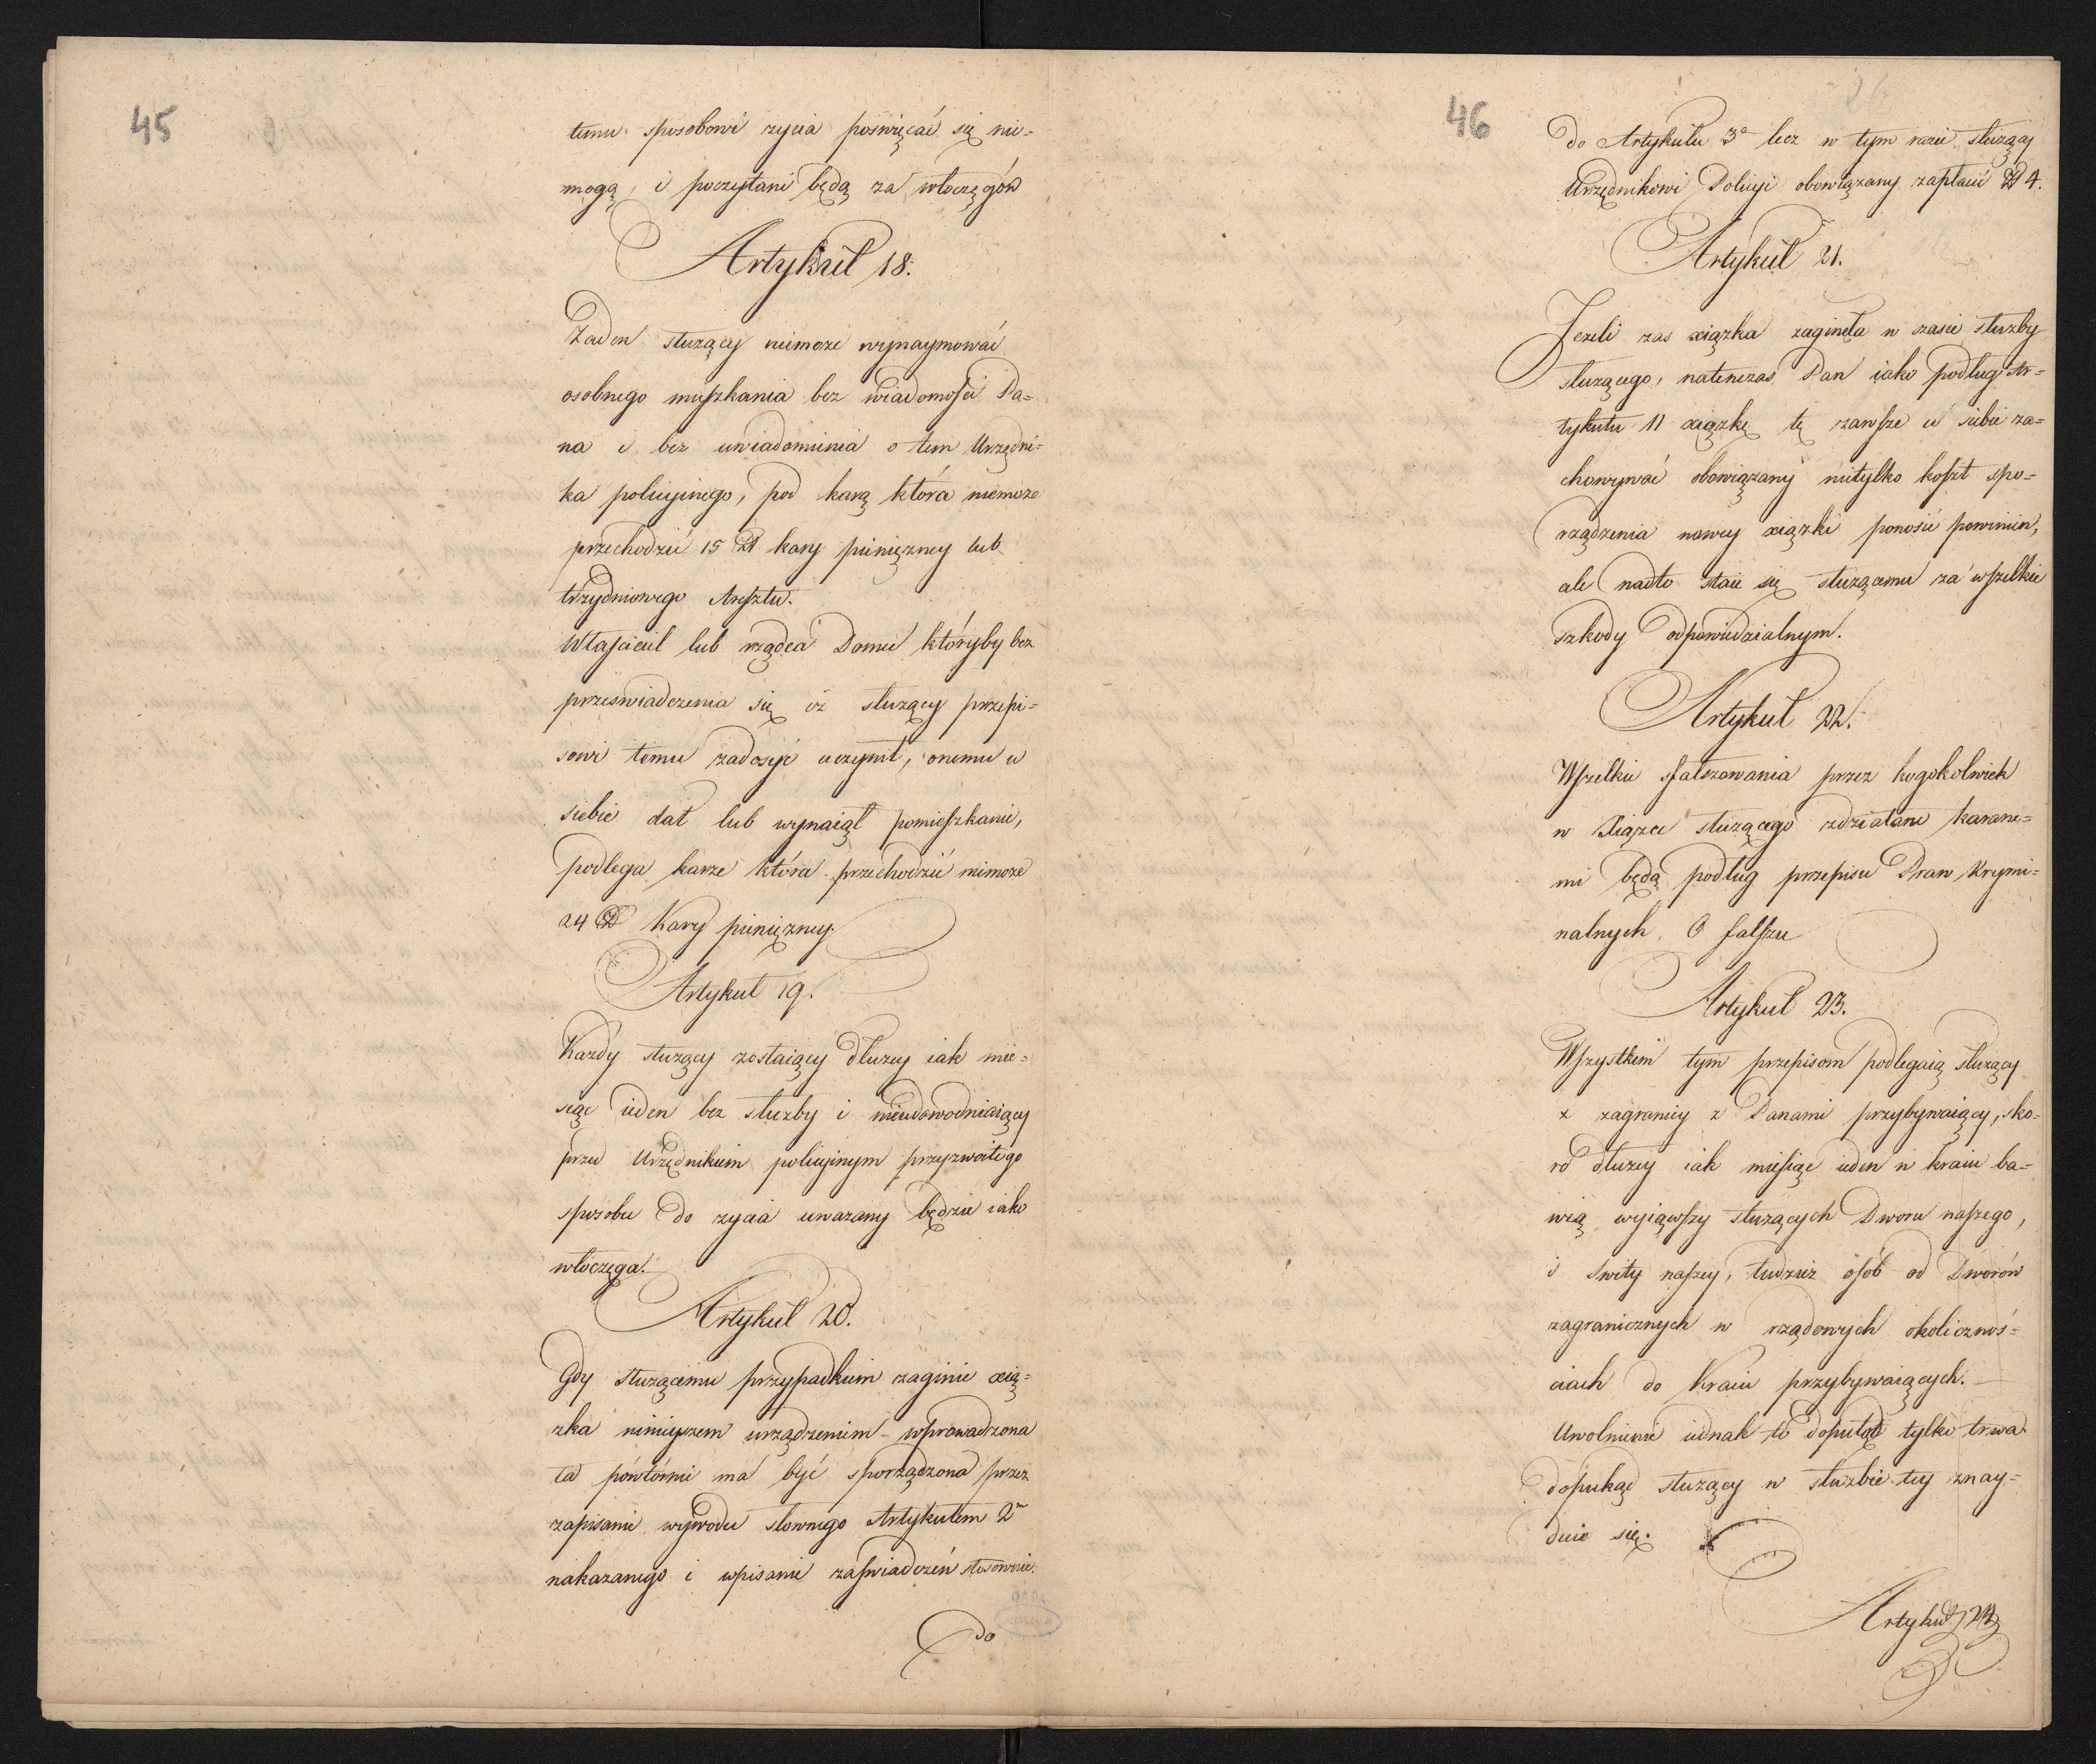 45
temu sposobowi zycia poswięcać się nie=
mogą, i poczytani będą za włoczęgów
Artykuł 18.
Zaden służący niemoze wynaymować
osobnego mieszkania bez wiadomości Pa=
na i bez uwiadomienia o tem Urzędni=
ka policyinego, pod karą która niemoze
przechodzić 15 Zł kary pieniężney lub
trzydniowego Aresztu.
Właściciel lub rządca Domu któryby bez
przeswiadczenia się iż służący przepi=
sowi temu zadosyć uczynił, onemu u
siebie dał lub wynaiął pomieszkanie,
podlega karze która przechodzić niemoze
24 Zł Kary pieniężney.
Artykuł 19.
Każdy służący zostaiący dłużey iak mie=
siąc ieden bez służby i nieudowodniaiący
przed Urzędnikiem policyinym przyzwoitego
sposobu do zycia uwazany będzie iako
włoczęga.
Artykuł 20.
Gdy służącemu przypadkiem zaginie xią=
zka ninieyszem urządzeniem wprowadzona
ta powtórnie ma być sporządzona przez
zapisanie wywodu słownego Artykułem 2m
nakazanego i wpisanie zaświadczeń stosownie
do
46
do Artykułu 3o lecz w tym razie służący
Urzędnikowi Policyi obowiązany zapłacić Zł 4.
Artykuł 21.
Jezeli zas xiązka zaginęła w czasie służby
służącego, natenczas Pan iako podług Ar=
tykułu 11 xiązkę tę zawsze u siebie za=
chowywać obowiązany nietylko koszt spo=
rządzenia nowey xiązki ponosić powinien,
ale nadto staie się służącemu za wszelkie
szkody odpowiedzialnym.
Artykuł 22.
Wszelkie sfałszowania przez kogokolwiek
w Xiązce służącego zdziałane karane=
mi będą podług przepisu Praw Krymi=
nalnych O fałszu
Artykuł 23.
Wszystkim tym przepisom podlegaią służący
z zagranicy z Panami przybywaiący, sko=
ro dłużey iak miesiąc ieden w kraiu ba=
wią wyiąwszy służących Dworu naszego,
i Swity naszey, tudzież osób od Dworów
zagranicznych w rządowych okolicznoś=
ciach do Kraiu przybywaiących.
Uwolnienie iednak to dopótąd tylko trwa
dopukąd służący w służbie tey znay=
duie się.
Artykuł 24